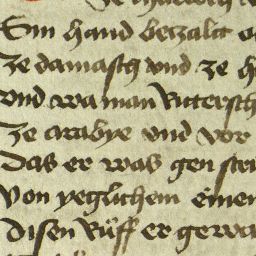 Sin hand betzalt
Ze damasch vnd ze h
vnd wa man Rittersch
Ze arabye vnd vor
Das er was gen stri
Von yeglichem einen
Disen Růff er gewa